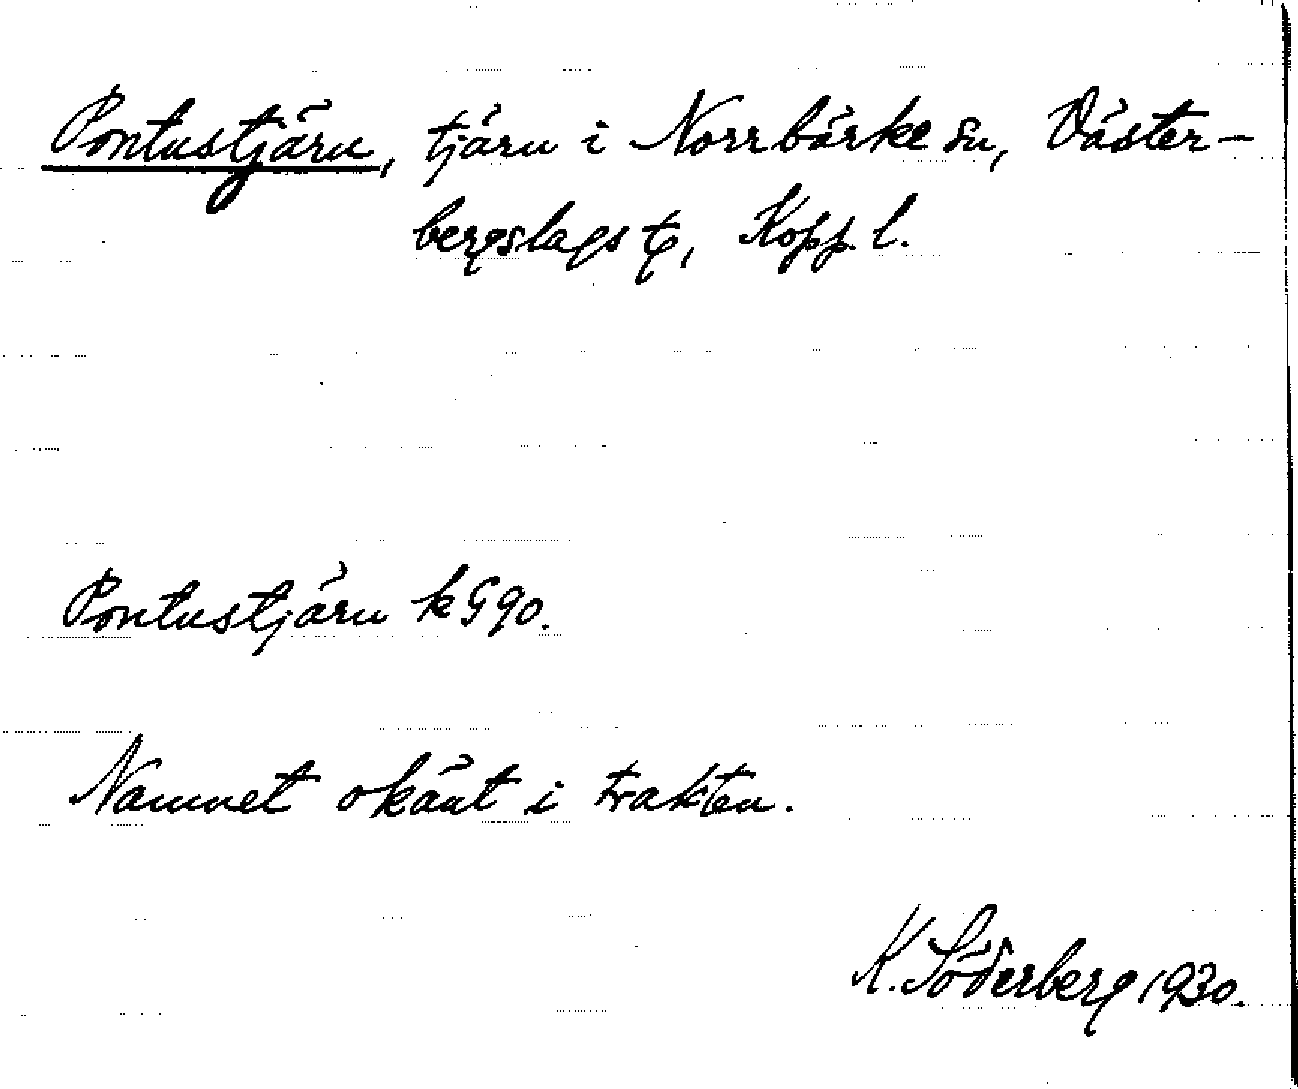 Pontustjärn, tjärn i Norrbärke sn, Väster-
bergslags tg, Kopp. l.
Pontustjärn k G 90.
Namnet okänt i trakten.
K. Söderberg 1930.